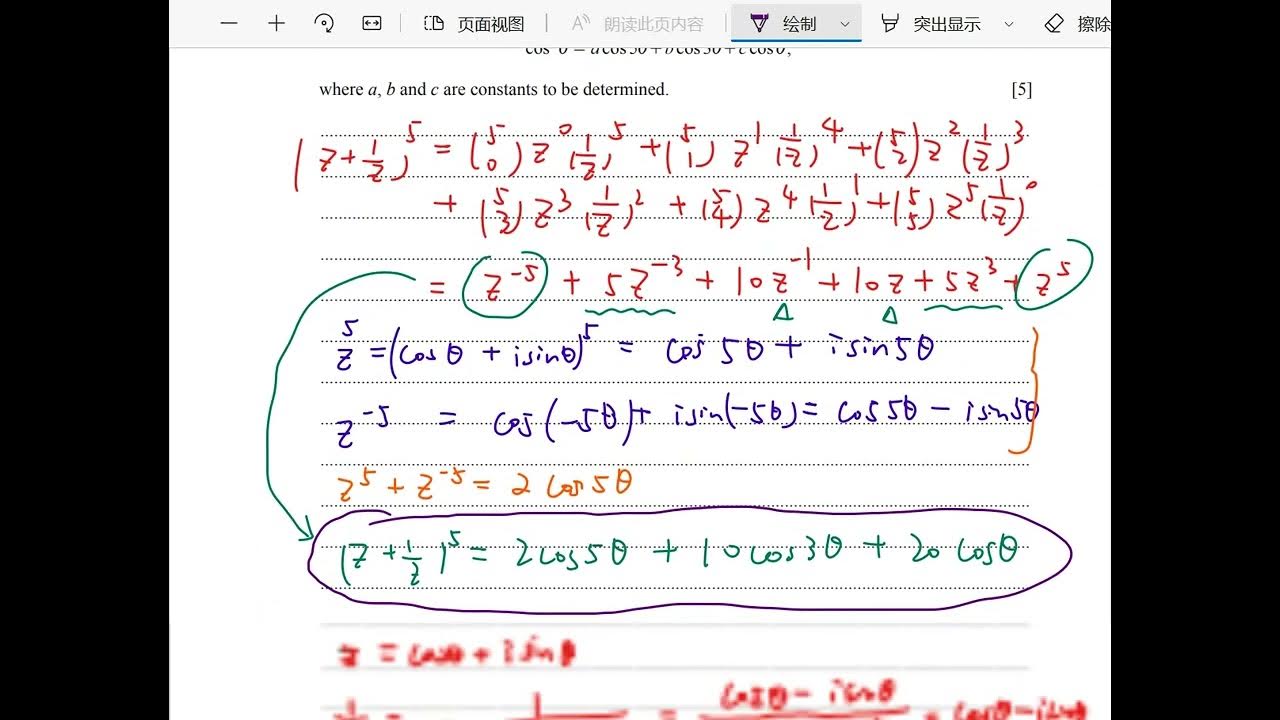 页面视图 朗读此页内容 绘制 突出显示 擦除
where a, b and c are constants to be determined. [5]
(z+1/z)^5 = (5 0) z^0 (1/z)^5 + (5 1) z^1 (1/z)^4 + (5 2) z^2 (1/z)^3
+ (5 3) z^3 (1/z)^2 + (5 4) z^4 (1/z)^1 + (5 5) z^5 (1/z)^0
= z^-5 + 5z^-3 + 10z^-1 + 10z + 5z^3 + z^5
z^5 = (cosθ + isinθ)^5 = cos 5θ + isin5θ
z^-5 = cos(-5θ) + isin(-5θ) = cos5θ - isin5θ
z^5 + z^-5 = 2cos5θ
(z+1/z)^5 = 2cos5θ + 10cos3θ + 20cosθ
z = cosθ + isinθ